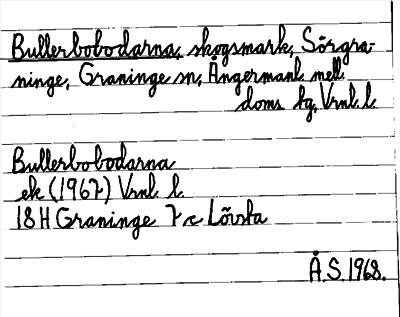 Bullerbobodarna, skogsmark, Sörgra-
ninge, Graninge sn, Ångermanl. mell.
doms. tg, Vrnl. l.
Bullerbobodarna
ek (1967) Vrnl. l.
18H Graninge 7c Lövsta
Å.S. 1968.